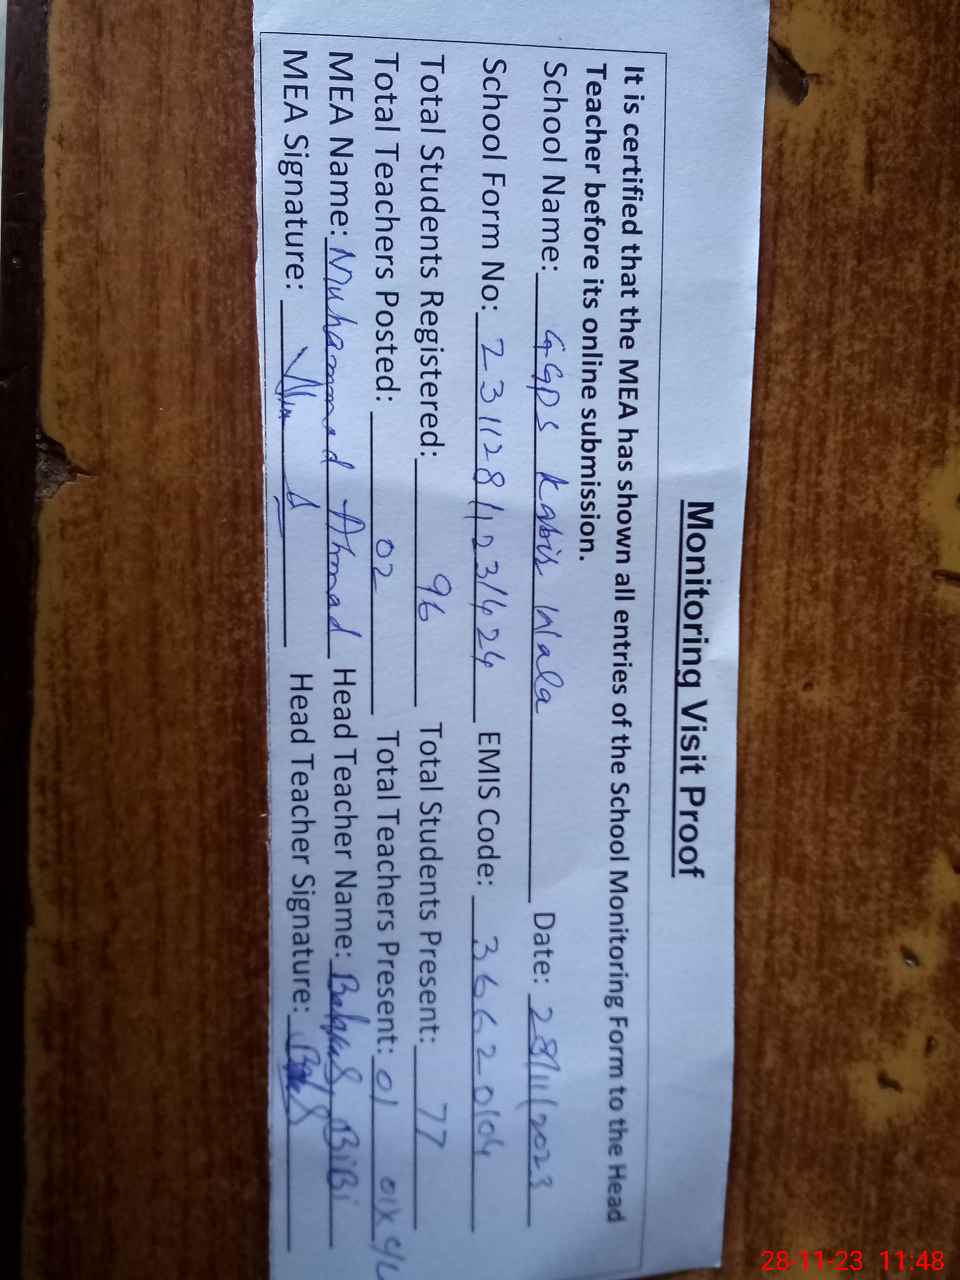 Monitoring Visit Proof
It is certified that the MEA has shown all entries of the School Monitoring Form to the Head
Teacher before its online submission.
School Name: GGPS Kabir Wala Date: 28/11/2023
School Form No: 231128/123/424 EMIS Code: 36620104
Total Students Registered: 96 Total Students Present: 77
Total Teachers Posted: 02 Total Teachers Present: 01
MEA Name: Muhammad Ahmad Head Teacher Name: BiBi
MEA Signature: Head Teacher Signature:
28-11-23 11:48